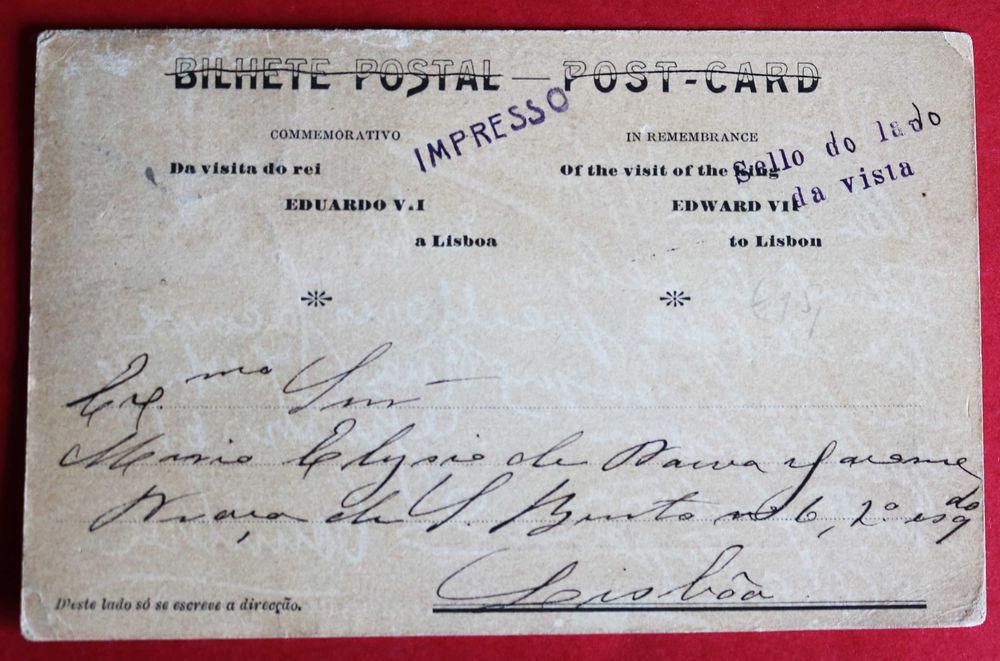 BILHETE POSTAL — POST-CARD
IMPRESSO
COMMEMORATIVO
Da visita do rei
EDUARDO V.I
a Lisboa
IN REMEMBRANCE
Of the visit of the King
EDWARD VII
to Lisbon
Sello do lado
da vista
Ex.mo Snr
Mario Elysio de
de S. Bento nº 6, 2º esqdo
Lisbôa
D'este lado só se escreve a direcção.